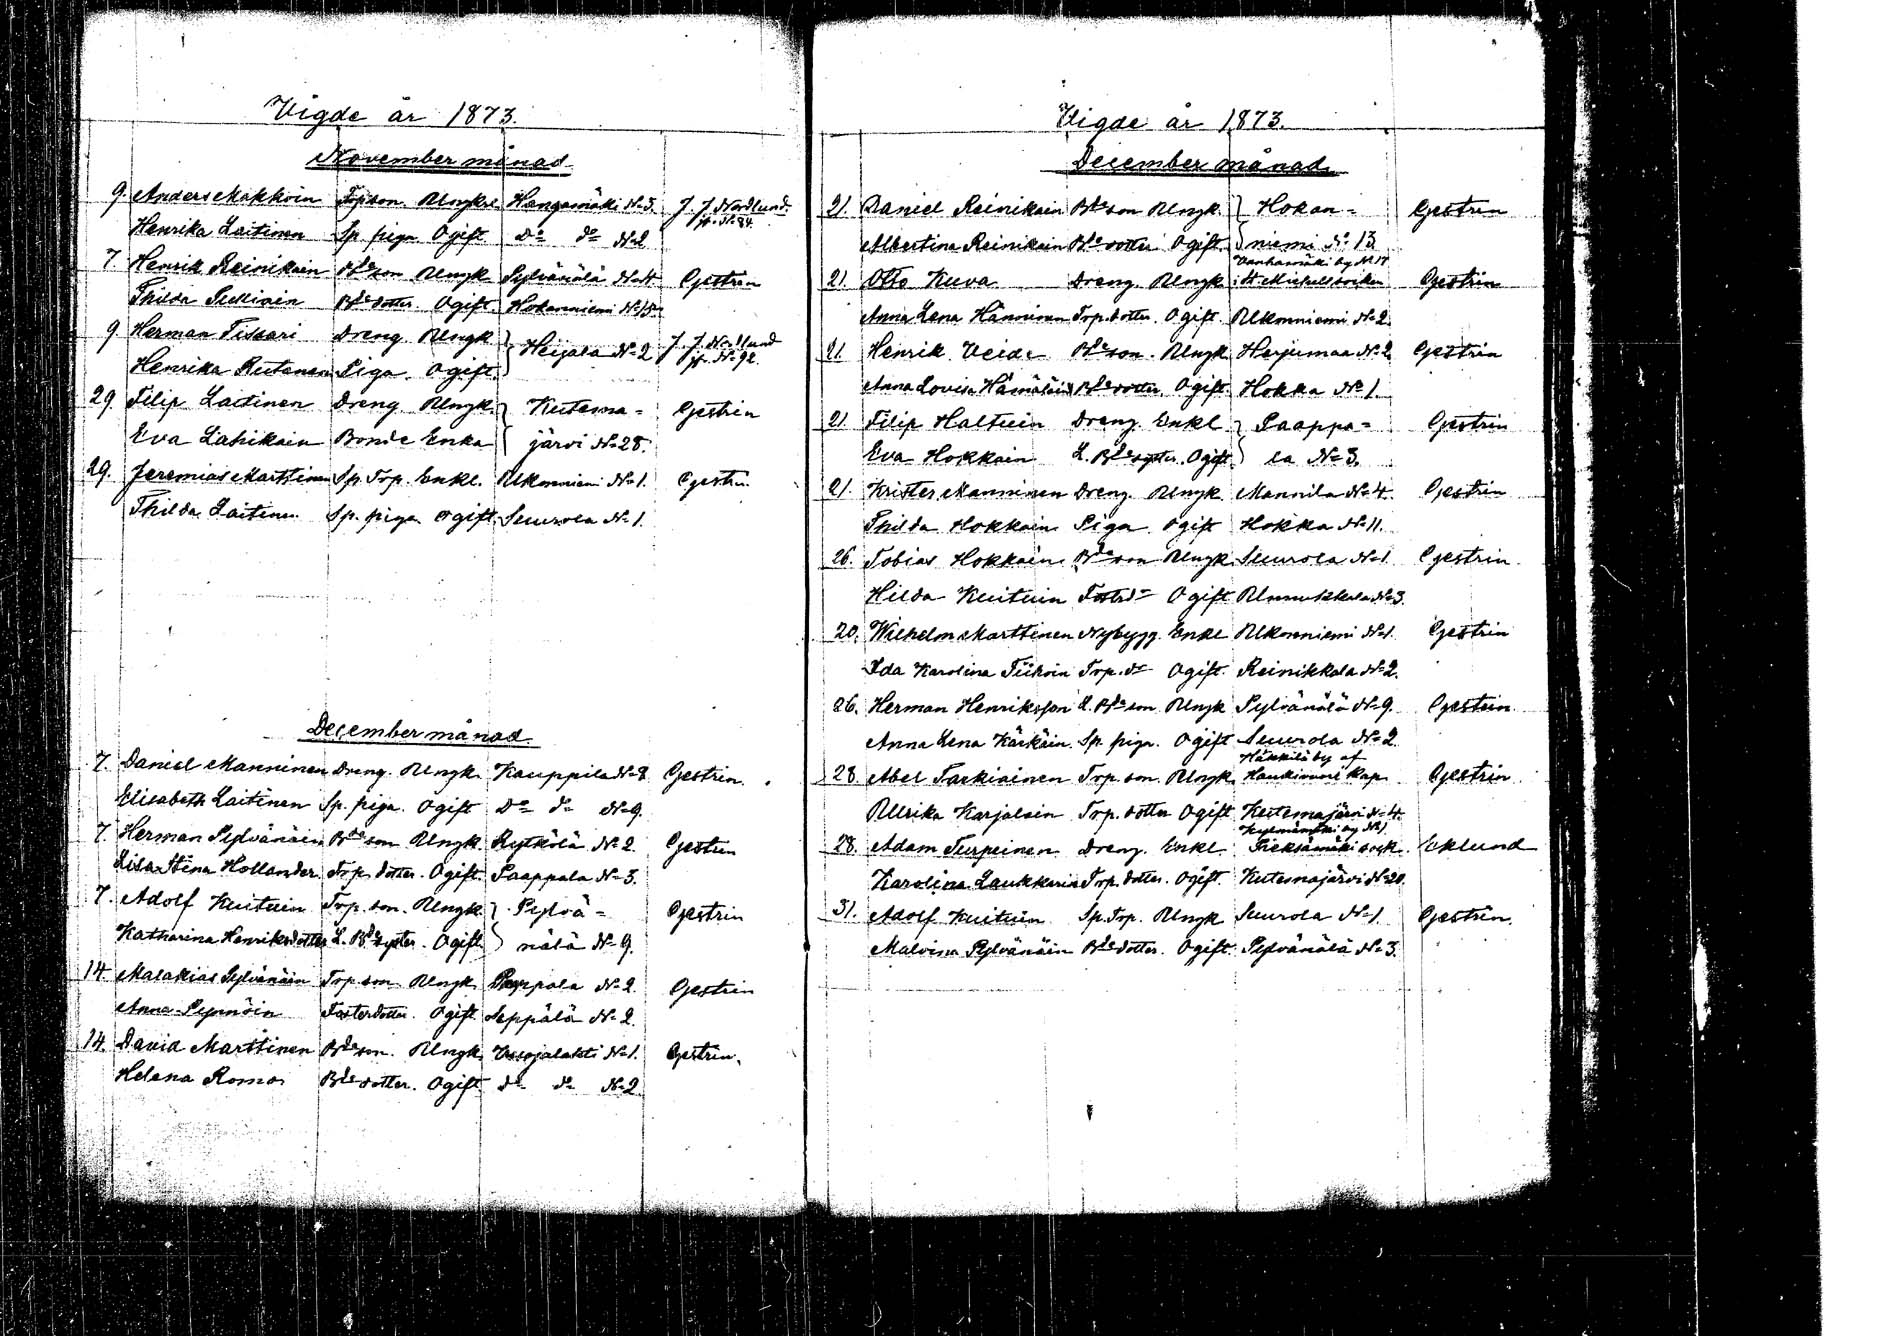 Vigde år 1873.
November månad
9. Anders Makkoin Trp son Ungk. Hangasmäki No 3. J. J. Nordlund.
Henrika Laitinen Sp. piga Ogift do do No 2
7. Henrik Reinikain Bde son Ungk Pylvänälä No 4 Gestrin
Thilda Pulliain Bde dotter. Ogift. Hokanniemi No 15
9 Herman Tissari Dreng Ungk } Heijala No 2 J. J. Nordlund
Henrika Rutanen Piga. Ogift. jfr No 92
29. Filip Laitinen Dreng Ungk. } Kutema= Gestrin
Eva Liahikain Bonde Enka järvi No 28.
29. Jeremias Marttinen Sp. Trp. Enkl. Ukonniemi No 1. Gestrin
Thilda Laitinen Sp. piga Ogift Suurola No 1.
December månad.
7. Daniel Manninen Dreng. Ungk. Kauppila No 8 Gestrin.
Elisabeth Laitinen Sp. piga Ogift Do do No 9.
7. Herman Pylvänäin Bde son Ungk. Rytkölä No 2. Gestrin
Lisa Stina Hollander Trp. dotter. Ogift. Paappala No 3.
7. Adolf Kuituin Trp. son. Ungk. } Pylvä= Gestrin
Katharina Henriksdotter L. Bde syster. Ogift } nälä No 9.
14. Malakias Pylvänäin Trp son Ungk. Pappala No 2. Gestrin
Anna Pynnöin Fosterdotter. Ogift Seppälä No 2.
14. David Marttinen Bde son. Ungk. No 1. Gestrin.
Helena Romo Bde dotter. Ogift. do do No 2.
Vigde år 1873.
December månad.
21. Daniel Reinikain Bde son Ungk. } Hokan= Gestrin
Albertina Reinikain Bde dotter Ogift. } niemi No 13
Vanhamäki by No 17
21. Otto Kuva Dreng. Ungk i St Michels socken Gestrin
Anna Lena Hänninen Trp. dotter. Ogift. Ukonniemi No 2.
21. Henrik Veide Bde son. Ungk Harjumaa No 2 Gestrin
Anna Lovisa Hämäläin Bde dotter. Ogift. Hokka No 1.
21 Filip Haltuin Dreng. Enkl } Paappa= Gestrin
Eva Hokkain L. Bde syster. Ogift. } la No 3.
21. Krister Manninen Dreng. Ungk. Mannila No 4. Gestrin
Thilda Hokkain Piga Ogift Hokka No 11.
26. Tobias Hokkain Bde son Ungk Suurola No 1 Gestrin.
Hilda Kuituin Ogift No 3.
20. Wilhelm Marttinen Nybygg. Enkl Ukonniemi No 1. Gestrin
Ida Karolina Tiihoin Trp. dr Ogift. Reinikkala No 2.
26. Herman Henriksson L. Bde son Ungk Pylvänälä No 9. Gestrin.
Anna Lena Kärkäin. Sp. piga. Ogift Suurola No 2
Häkkilä by af
28 Abel Tarkiainen Trp son. Ungk. Haukivuori Kap. Gestrin.
Ullrika Karjalain Trp. dotter Ogift Kutemajärvi No 4.
by No 1.
28. Adam Turpeinen Dreng. Enkl. Pieksämäki sock. Eklund
Karolina Laukkarin Trp. dotter. Ogift. Kutemajärvi No 20.
31. Adolf Kuituin Sp. Trp. Ungk Suurola No 1. Gestrin.
Malvina Pylvänäin Bde dotter. Ogift. Pylvänälä No 3.